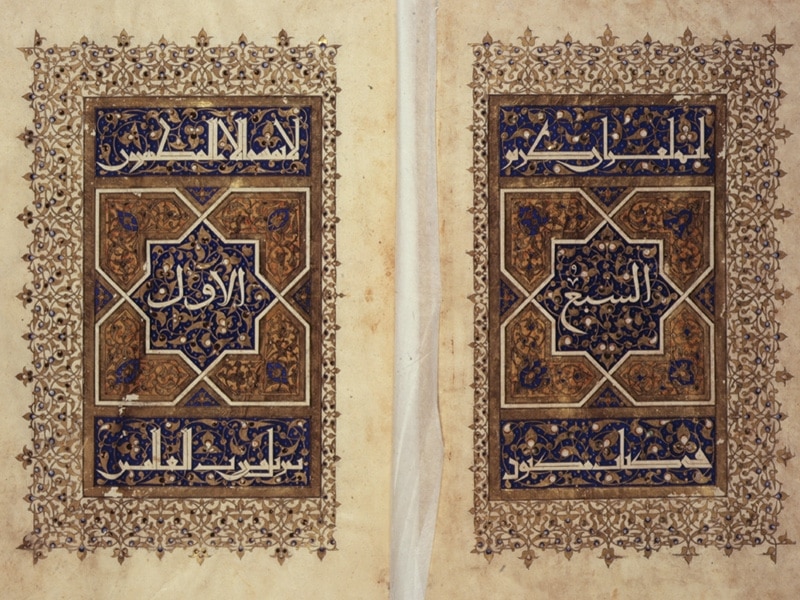 انه لقرآن كريم
السبع
في كتاب مكنون
لا يمسه الا المطهرون
الاول
تنزيل من رب العالمين